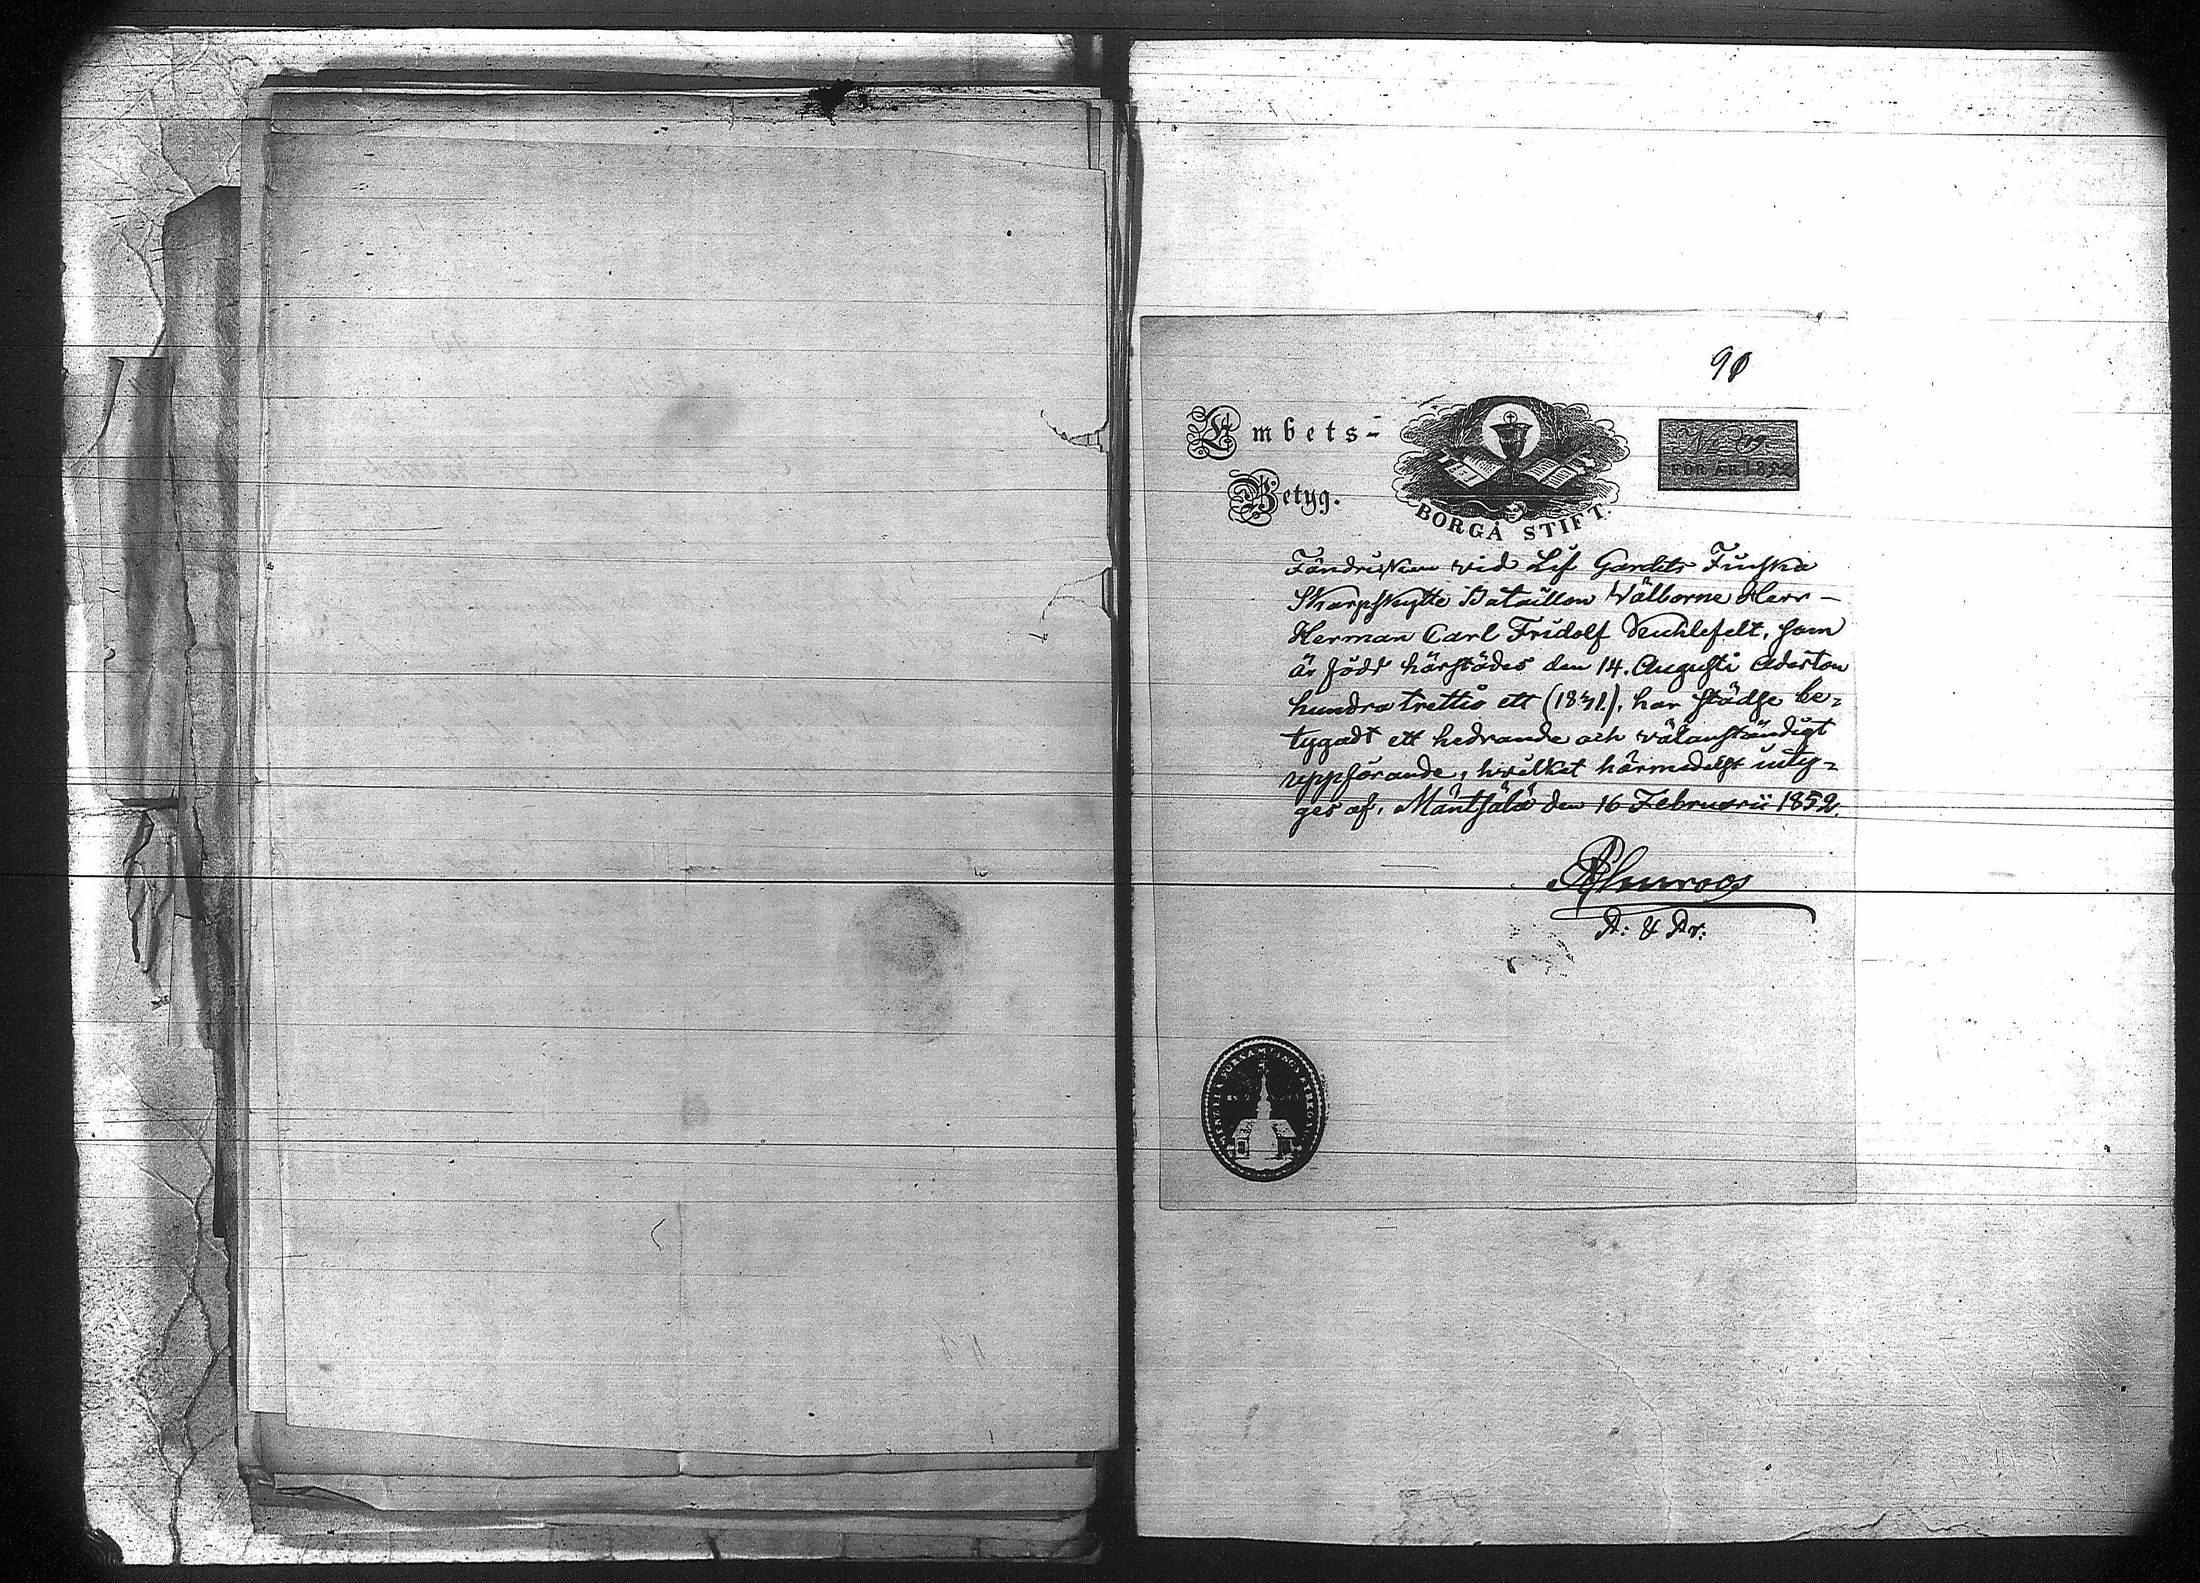 90
Embets-
Betyg.
BORGÅ STIFT.
FÖR ÅR 1852
Fändricken vid Lif Gardets Finska
Skarpskytte Bataillon Välborne Herr –
Herman Carl Fridolf Stichlefelt, som
är född härstädes den 14. Augusti Aderton
hundra trettio ett (1831.), har städse be=
tygadt ett hedrande och välanständigt
uppförande, hvilket härmedelst inty=
ges af, Mäntsälä den 16 Februarii 1852.
Almroos